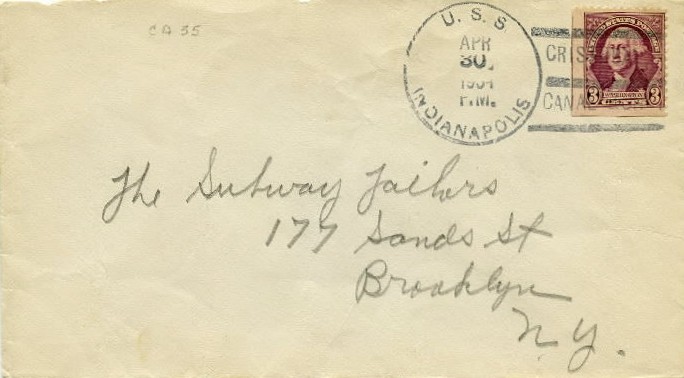 CA 35
U. S. S.
APR
30
1934
P.M.
INDIANAPOLIS
CANAL
UNITED STATES POSTAGE
WASHINGTON
3 CENTS 3
The Subway Tailors
177 Sands St
Brooklyn
N.Y.